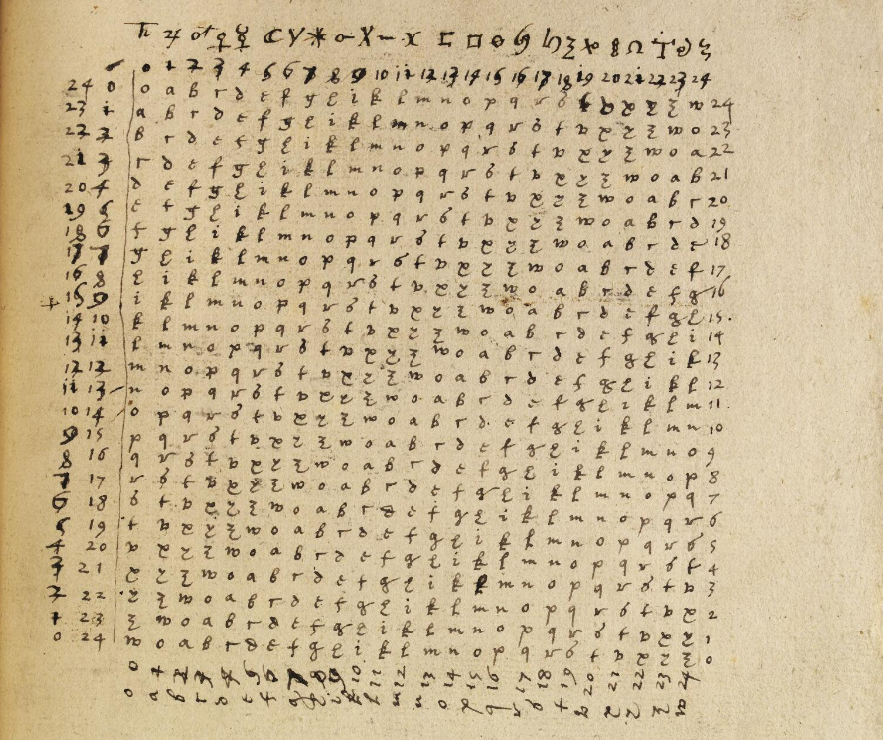 ♄ ♃ ♂ ♀ ☿ ☾ Y ✳ □ ♌
0 1 2 3 4 5 6 7 8 9 10 11 12 13 14 15 16 17 18 19 20 21 22 23 24
24 0 o a b c d e f g h i k l m n o p q r s t v x y z w 24
23 1 a b c d e f g h i k l m n o p q r s t v x y z w o 23
22 2 b c d e f g h i k l m n o p q r s t v x y z w o a 22
21 3 c d e f g h i k l m n o p q r s t v x y z w o a b 21
20 4 d e f g h i k l m n o p q r s t v x y z w o a b c 20
19 5 e f g h i k l m n o p q r s t v x y z w o a b c d 19
18 6 f g h i k l m n o p q r s t v x y z w o a b c d e 18
17 7 g h i k l m n o p q r s t v x y z w o a b c d e f 17
16 8 h i k l m n o p q r s t v x y z w o a b c d e f g 16
15 9 i k l m n o p q r s t v x y z w o a b c d e f g h 15
14 10 k l m n o p q r s t v x y z w o a b c d e f g h i 14
13 11 l m n o p q r s t v x y z w o a b c d e f g h i k 13
12 12 m n o p q r s t v x y z w o a b c d e f g h i k l 12
11 13 n o p q r s t v x y z w o a b c d e f g h i k l m 11
10 14 o p q r s t v x y z w o a b c d e f g h i k l m n 10
9 15 p q r s t v x y z w o a b c d e f g h i k l m n o 9
8 16 q r s t v x y z w o a b c d e f g h i k l m n o p 8
7 17 r s t v x y z w o a b c d e f g h i k l m n o p q 7
6 18 s t v x y z w o a b c d e f g h i k l m n o p q r 6
5 19 t v x y z w o a b c d e f g h i k l m n o p q r s 5
4 20 v x y z w o a b c d e f g h i k l m n o p q r s t 4
3 21 x y z w o a b c d e f g h i k l m n o p q r s t v 3
2 22 y z w o a b c d e f g h i k l m n o p q r s t v x 2
1 23 z w o a b c d e f g h i k l m n o p q r s t v x y 1
0 24 w o a b c d e f g h i k l m n o p q r s t v x y z 0
0 1 2 3 4 5 6 7 8 9 10 11 12 13 14 15 16 17 18 19 20 21 22 23 24